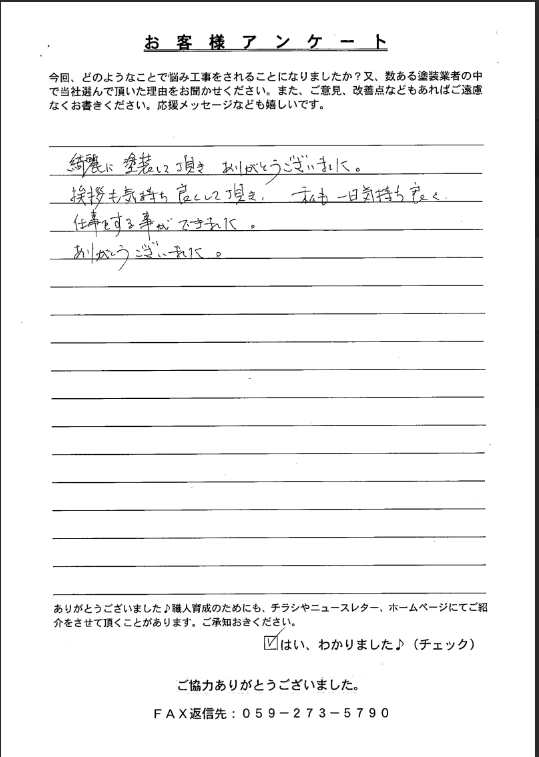 お客様アンケート
今回、どのようなことで悩み工事をされることになりましたか？又、数ある塗装業者の中
で当社選んで頂いた理由をお聞かせください。また、ご意見、改善点などもあればご遠慮
なくお書きください。応援メッセージなども嬉しいです。
綺麗に塗装して頂き ありがとうございました。
挨拶も気持ち良くして頂き、私も一日気持ち良く
仕事をする事ができました。
ありがとうございました。
ありがとうございました♪職人育成のためにも、チラシやニュースレター、ホームページにてご紹
介をさせて頂くことがあります。ご承知おきください。
☑はい、わかりました♪（チェック）
ご協力ありがとうございました。
ＦＡＸ返信先：０５９－２７３－５７９０